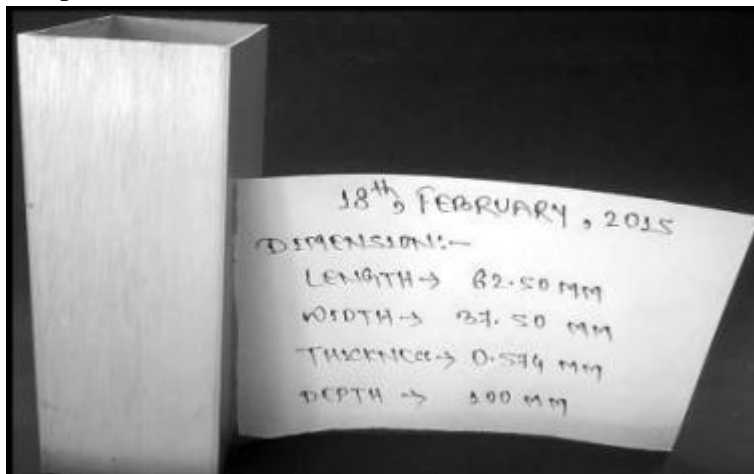 18th, FEBRUARY, 2015
DIMENSION:-
LENGTH → 62.50 MM
WIDTH → 37.50 MM
THICKNESS → 0.574 MM
DEPTH → 100 MM